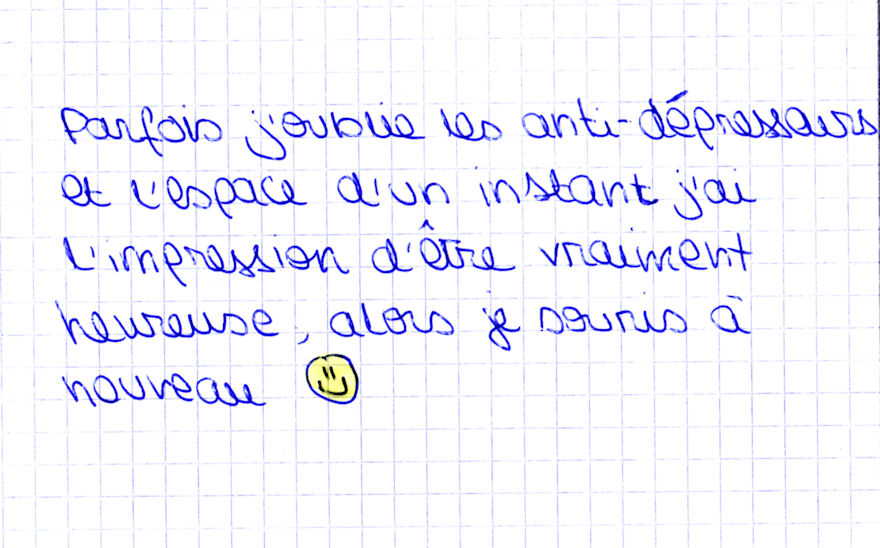 Parfois j'oublie les anti-dépresseurs
et l'espace d'un instant j'ai
l'impression d'être vraiment
heureuse, alors je souris à
nouveau